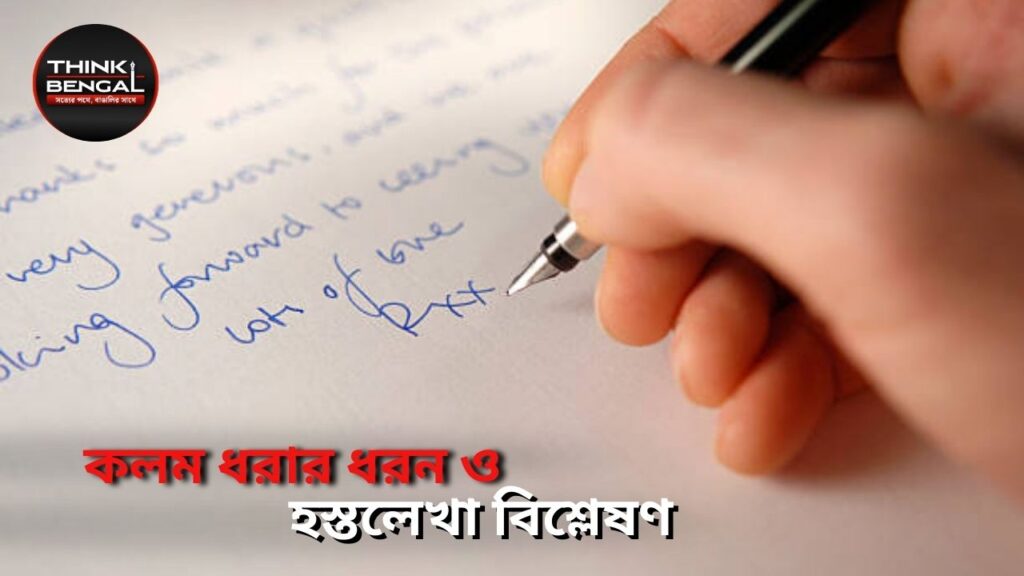 THINK
BENGAL
সত্যের পথে, বাঙালির সাথে
thanks so much for
very generous, and
looking forward to seeing
lots of love
Rxx
কলম ধরার ধরন ও
হস্তলেখা বিশ্লেষণ